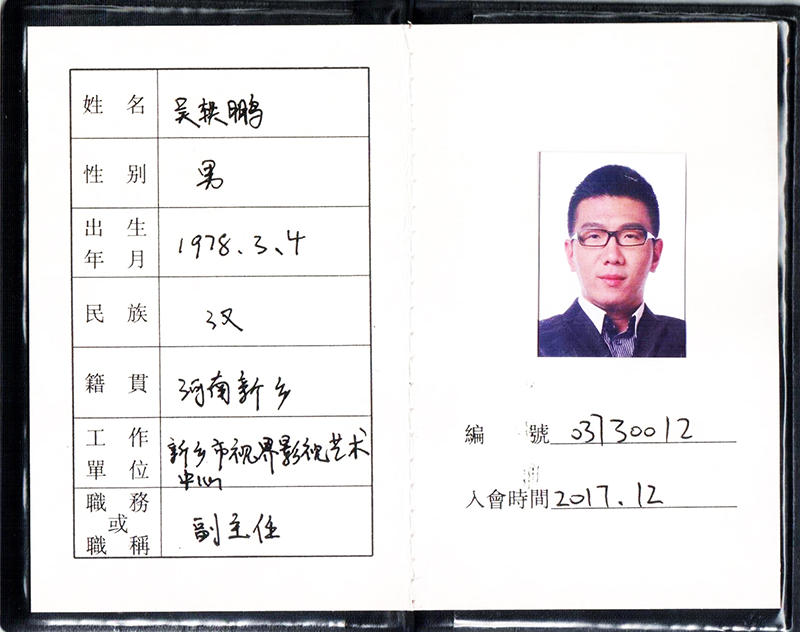 姓 名 吴轶鹏
性 别 男
出 生
年 月 1978.3.4
民 族 汉
籍 貫 河南新乡
工 作
單 位 新乡市视界影视艺术
中心
職 務
或
職 稱 副主任
編 號 03730012
入會時間 2017.12